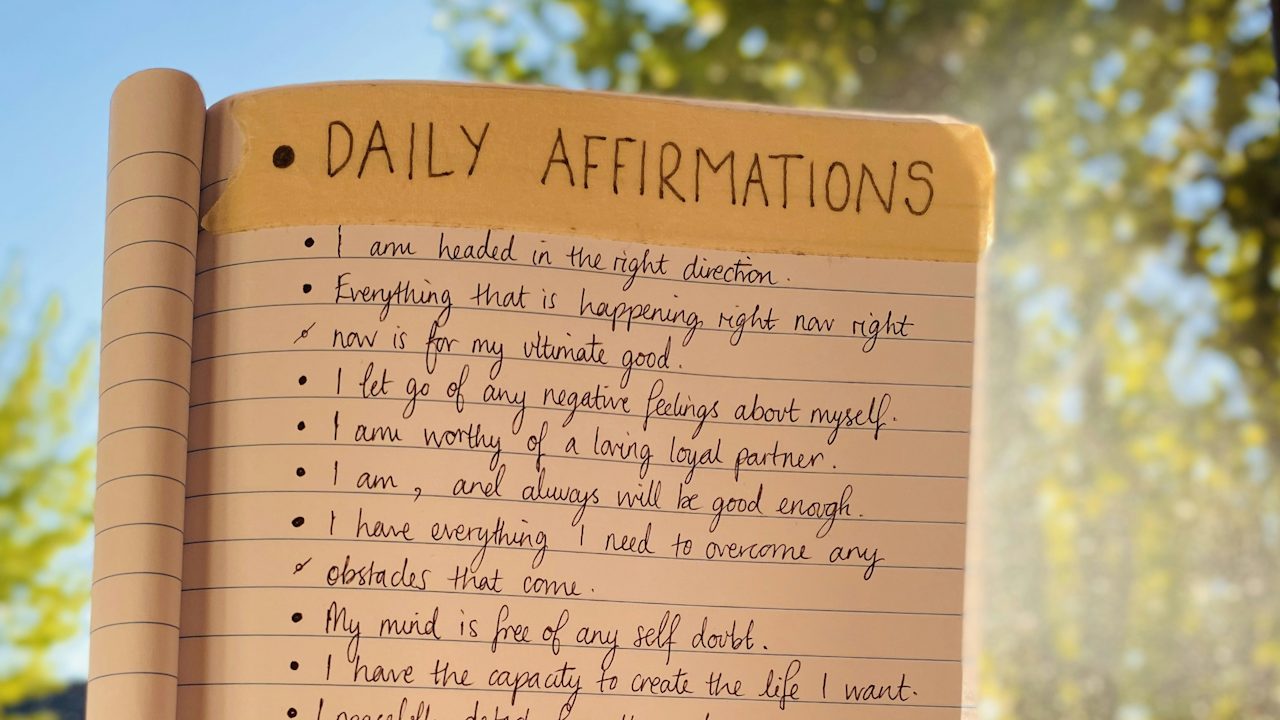 • DAILY AFFIRMATIONS
• I am headed in the right direction.
• Everything that is happening right now right
now is for my ultimate good.
• I let go of any negative feelings about myself.
• I am worthy of a loving loyal partner.
• I am, and always will be good enough.
• I have everything I need to overcome any
obstacles that come.
• My mind is free of any self doubt.
• I have the capacity to create the life I want.
• I